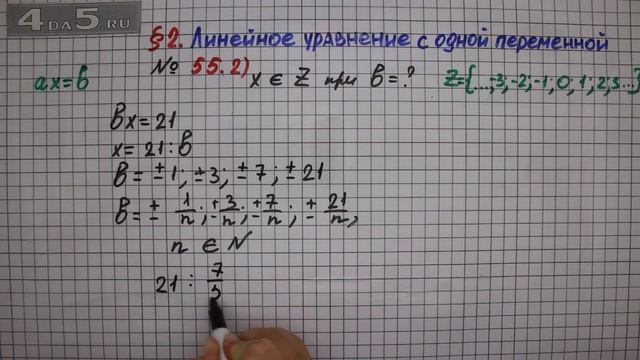 4DA5.RU
§2. Линейное уравнение с одной переменной
№ 55. 2) x ∈ Z при в = ? Z={...,-3;-2;-1;0;1;2;3...}
ax=в
вx=21
x= 21:в
в= ±1; ±3; ±7; ±21
в= ± 1/n; ± 3/n; ± 7/n; ± 21/n,
n ∈ N
21 : 7/3